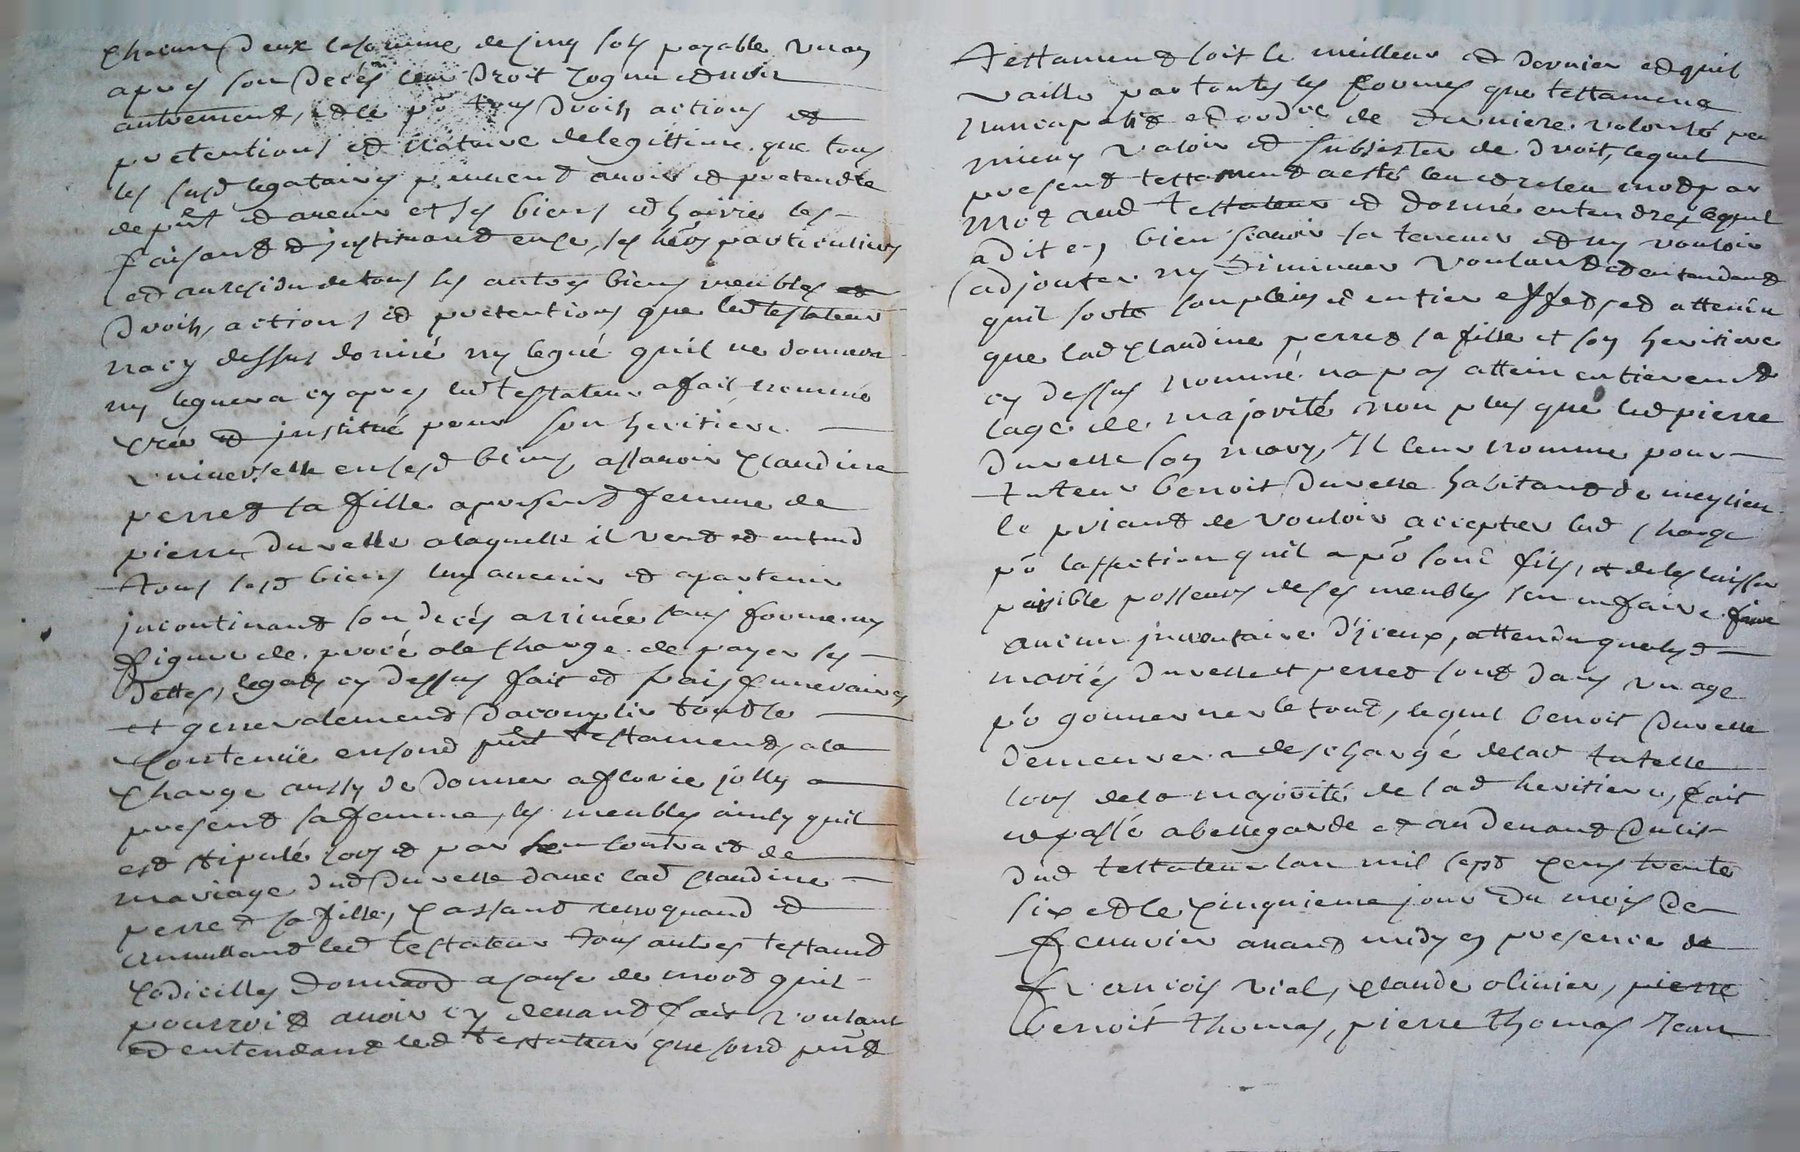 chacun deux la somme de cinq sols payable un an
apres son deces leur droit cognu et non
autrement, et le po tous droits actions et
pretentions et nature de legittime que tous
les susd legataires peuvent avoir et pretendre
de pnt et avenir et ses biens et hoirie les
faisant et justituand en ce, ses heres particuliers
et au residu de tous ses autres biens meubles et
droits, actions et pretentions que led testateur
na cy dessus donné ny legué quil ne donnera
ny leguera cy apres led testateur a fait nommé
créé et justitué pour son heritiere
universelle en sesd biens, assavoir Claudine
perret sa fille a present femme de
pierre Duvelle a laquelle il veut et entend
tous sesd biens luy avenir et apartenir
jncontinant son deces arrivée sans forme ny
figure de procé a la charge de payer ses
dettes, legats cy dessus fait et frais funeraires
et generalement dacomplir tout le
contenüe en sond pnt testament, a la
charge aussy de donner a florie jolly a
present sa femme, les meubles ainsy quil
est stipulé lors et par son contract de
mariage dud Duvelle avec lad Claudine
perret sa fille, cassant revoquand et
annullant led testateur tous autres testamt
codicilles donnaõd a cause de mort quil
pourroit avoir cy devant fait voulant
et entendant led testateur que sond pnt
testament soit le meilleur et dernier et quil
vaille par toutes les formes que testament
nuncupatif et ordre de derniere volonté peu
mieux valoir et subsister de droit, lequel
present testament a esté leu et releu mot par
mot aud testateur et donné entendre, lequel
a dit et bien scavoir sa teneur et ny vouloir
adjouter ny diminuer voulant et entendant
quil sorte son plein et entier effet, et attendu
que lad Claudine perret sa fille et son heritiere
cy dessus nommé na pas attein entierement
lage de majorité non plus que led pierre
duvelle son mary, Il leur nomme pour
tuteur benoit Duvelle habitant de meylieu
le priant de vouloir accepter lad charge
po laffection quil a po sond fils, et de les laisser
paisible possesseurs de ses meubles sans en faire faire
aucun jnventaire djceux, attendu que lesd
mariés duvelle et perret sont dans un age
po gouverner le tout, lequel benoit Duvelle
demeurera deschargé de lad tutelle
lors de la majorité de lad heritiere, fait
et passé a bellegarde et au devant du lit
dud testateur lan mil sept cens trente
six et le cinquieme jour du mois de
fevrier avant midy en presence de
francois vial, claude olivier, pierre
benoit thomas, pierre thomas Jean